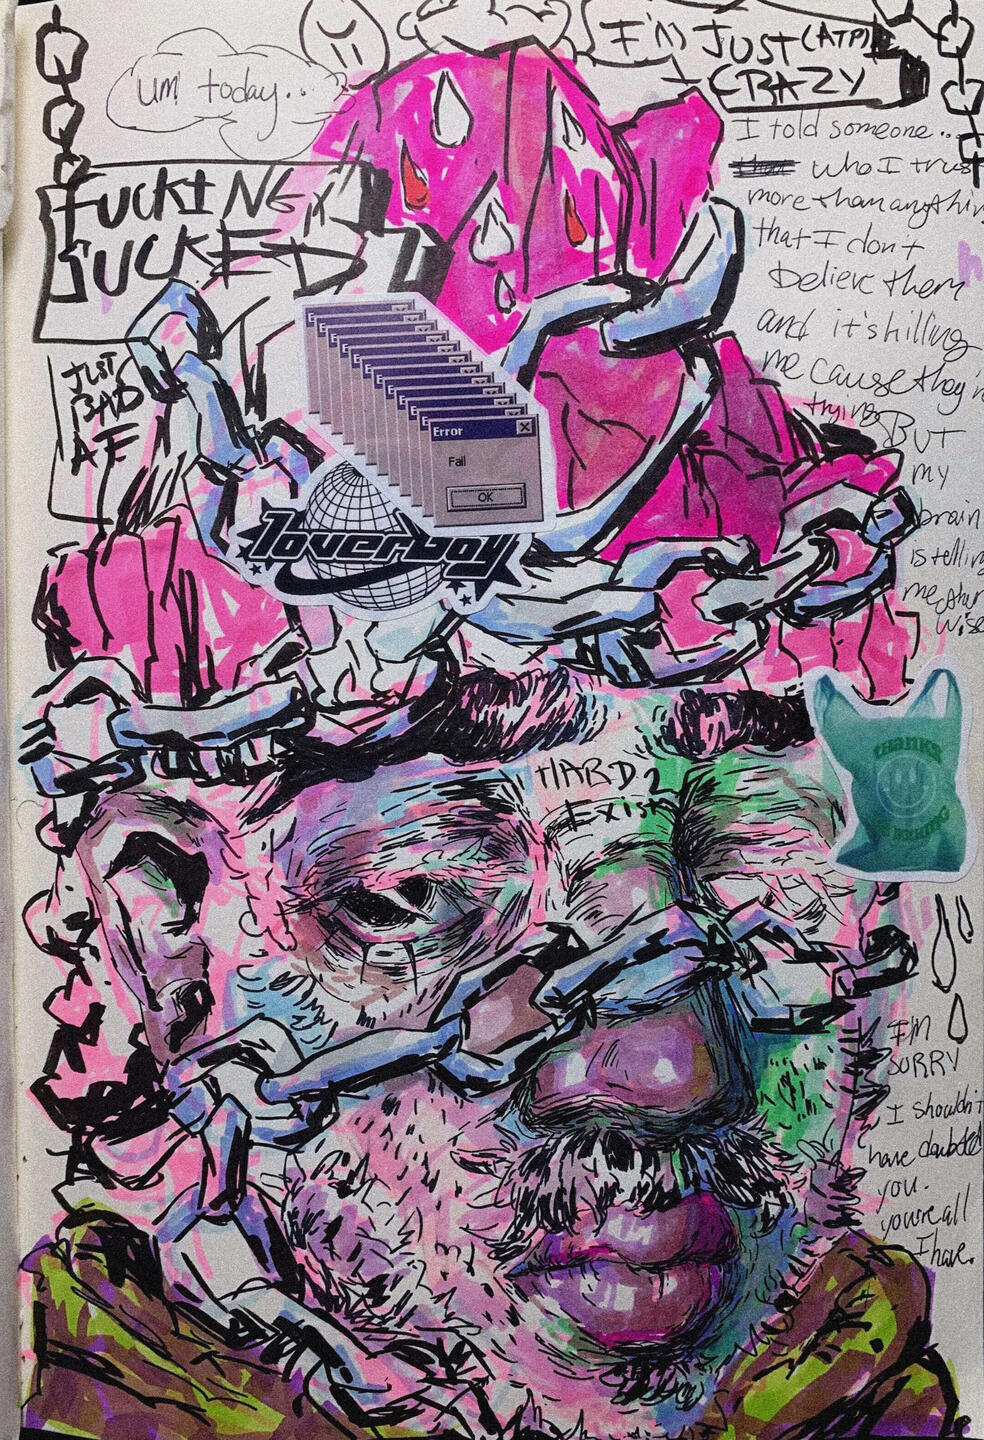 um today...
FUCKING
SUCKED
JUST
BAD
AF
I'M JUST (ATP)
CRAZY
I told someone...
who I trust
more than anything
that I don't
believe them
and it's killing
me cause they're
trying But
my
brain
is telling
me other
wise
Error
Fail
OK
loverboy
HARD 2
Exist
thanks
I'M
SORRY
I shouldn't
have doubted
you.
you're all
I have.